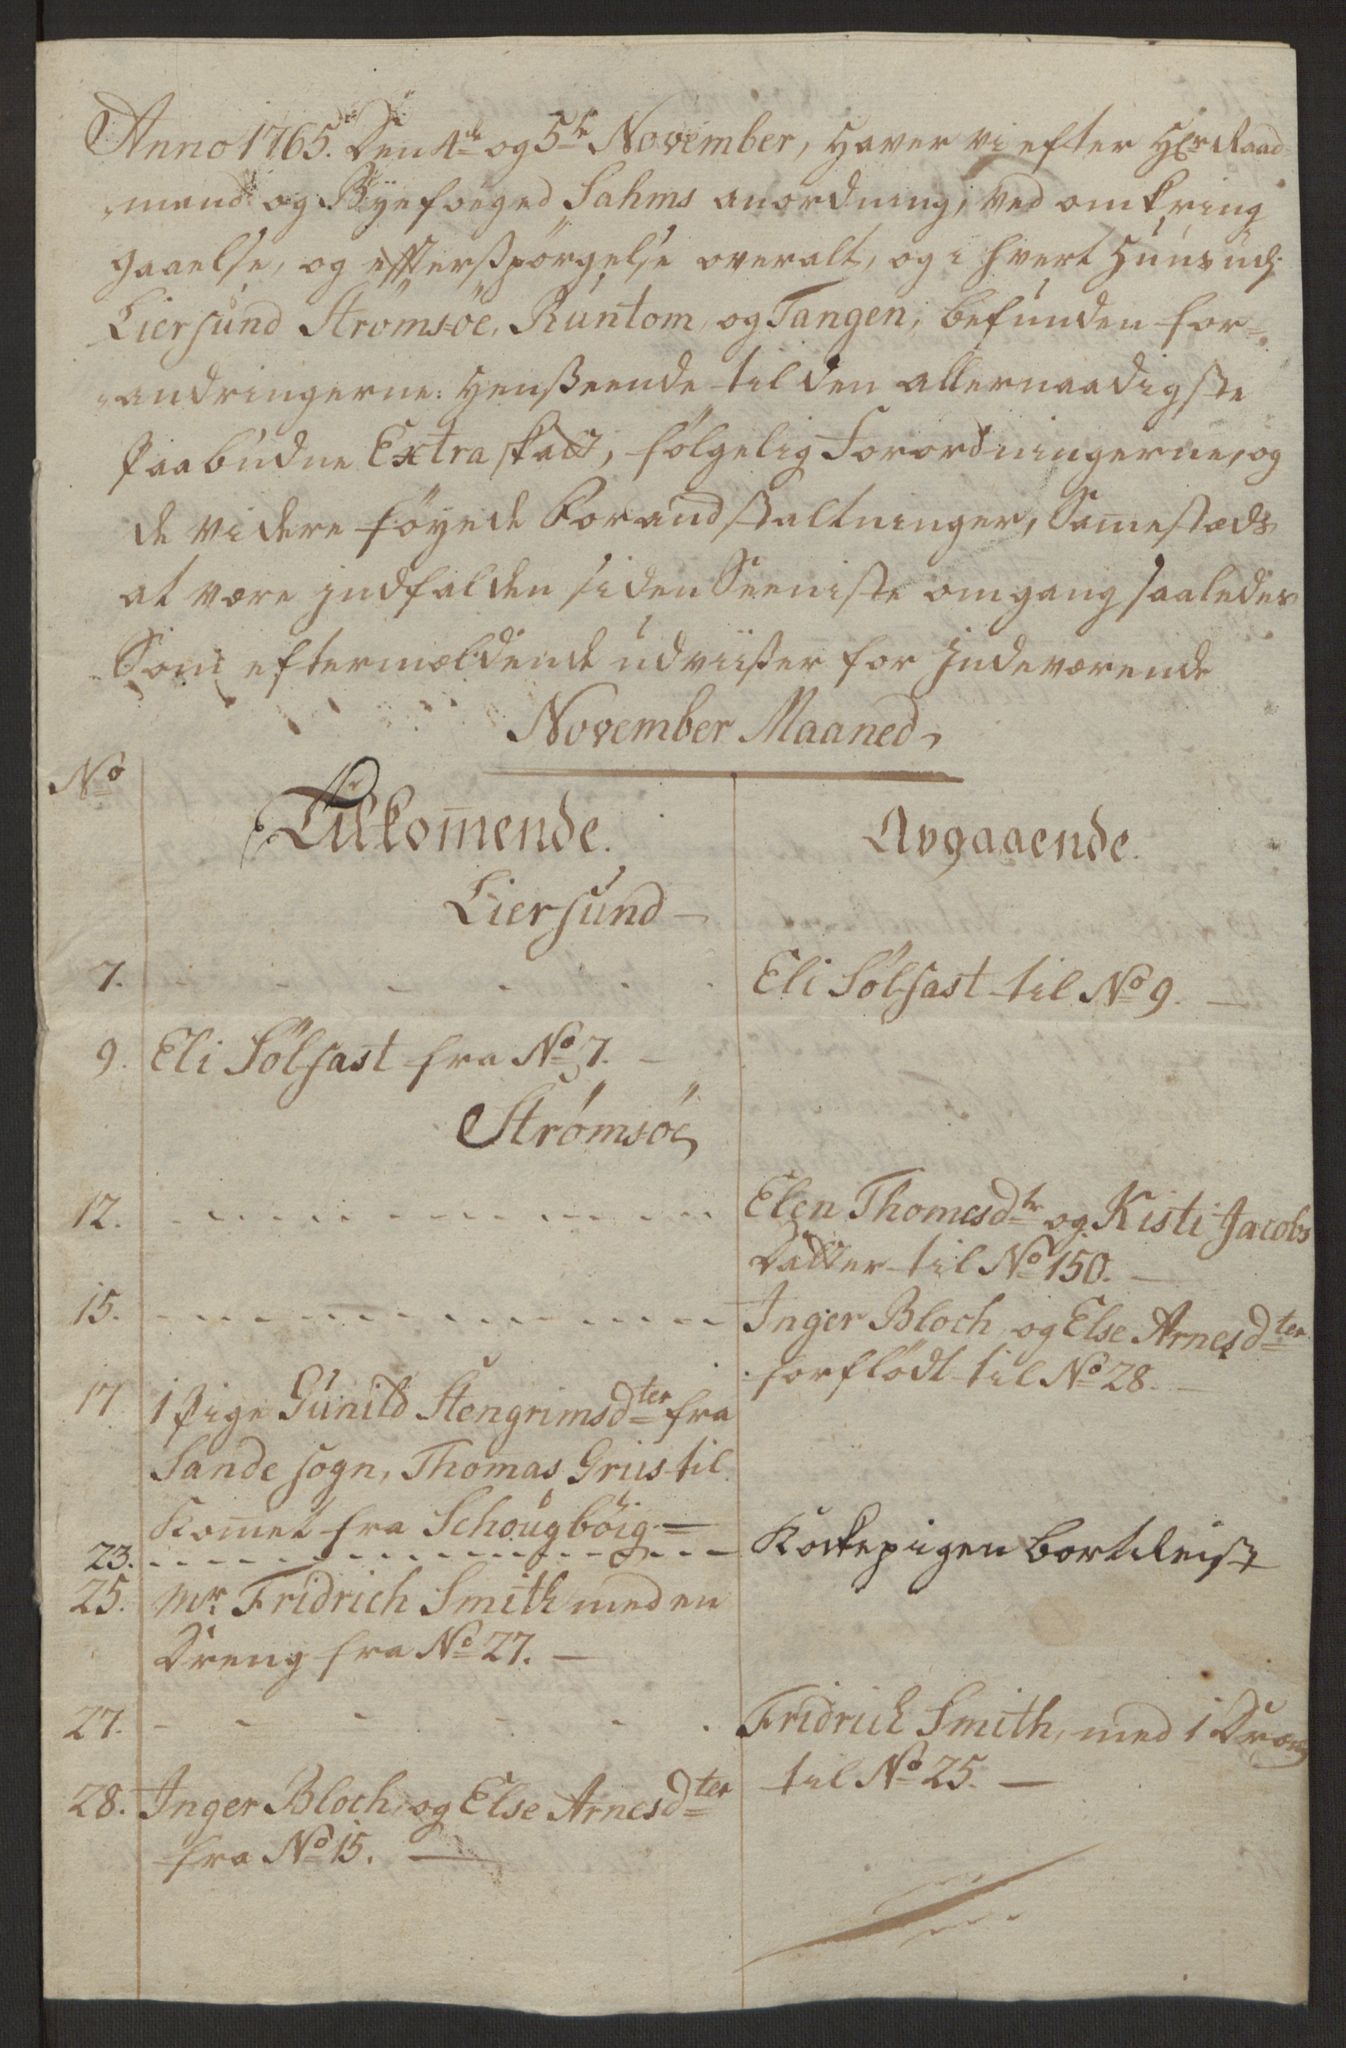 Anno 1765. Den 4de og 5te November, haver vi efter Hr Raad-
mand og Byefoeged Sahms anordning, ved omkring
gaaelse, og efterspörgelse overalt, og i hvert Huus udj
Liersund Strömsöe, Runtom, og Tangen, befunden for-
andringerne: henseende til den allernaadigste
paabudne Extra skatt, følgelig Forordningerne, og
de videre föyede Foranstaltninger, Samesteds
at være jndfalden siden Seeniste omgang saaledes
Som eftermeldende udviiser for jndeværende
November Maaned,
No
Tilkom̄ende.
Avgaaende.
Liersund —
7. - - - - - - Eli Sölfast til No 9. —
9. Eli Sölfast fra No 7. —
Strömsöe,
12. - - - - - - - - - - Elen Thomesdtr og Kisti Jacobs
Datter til No 150. —
15. - - - - - - - - - - Inger Bloch, og Else Arnesdter
forflödt til No 28. —
17 1 Pige Gunild Stengrimsdter fra
Sande sogn, Thomas Griis til
Komet fra Schougböig —
23. - - - - - - - - - - Kokkepigen bortreist
25. Mr Fridrich Smith med en
Dreng fra No 27. —
27. - - - - - - Fridrich Smith, med 1 Dreng
til No 25. —
28. Inger Bloch, og Else Arnesdter
fra No 15. —